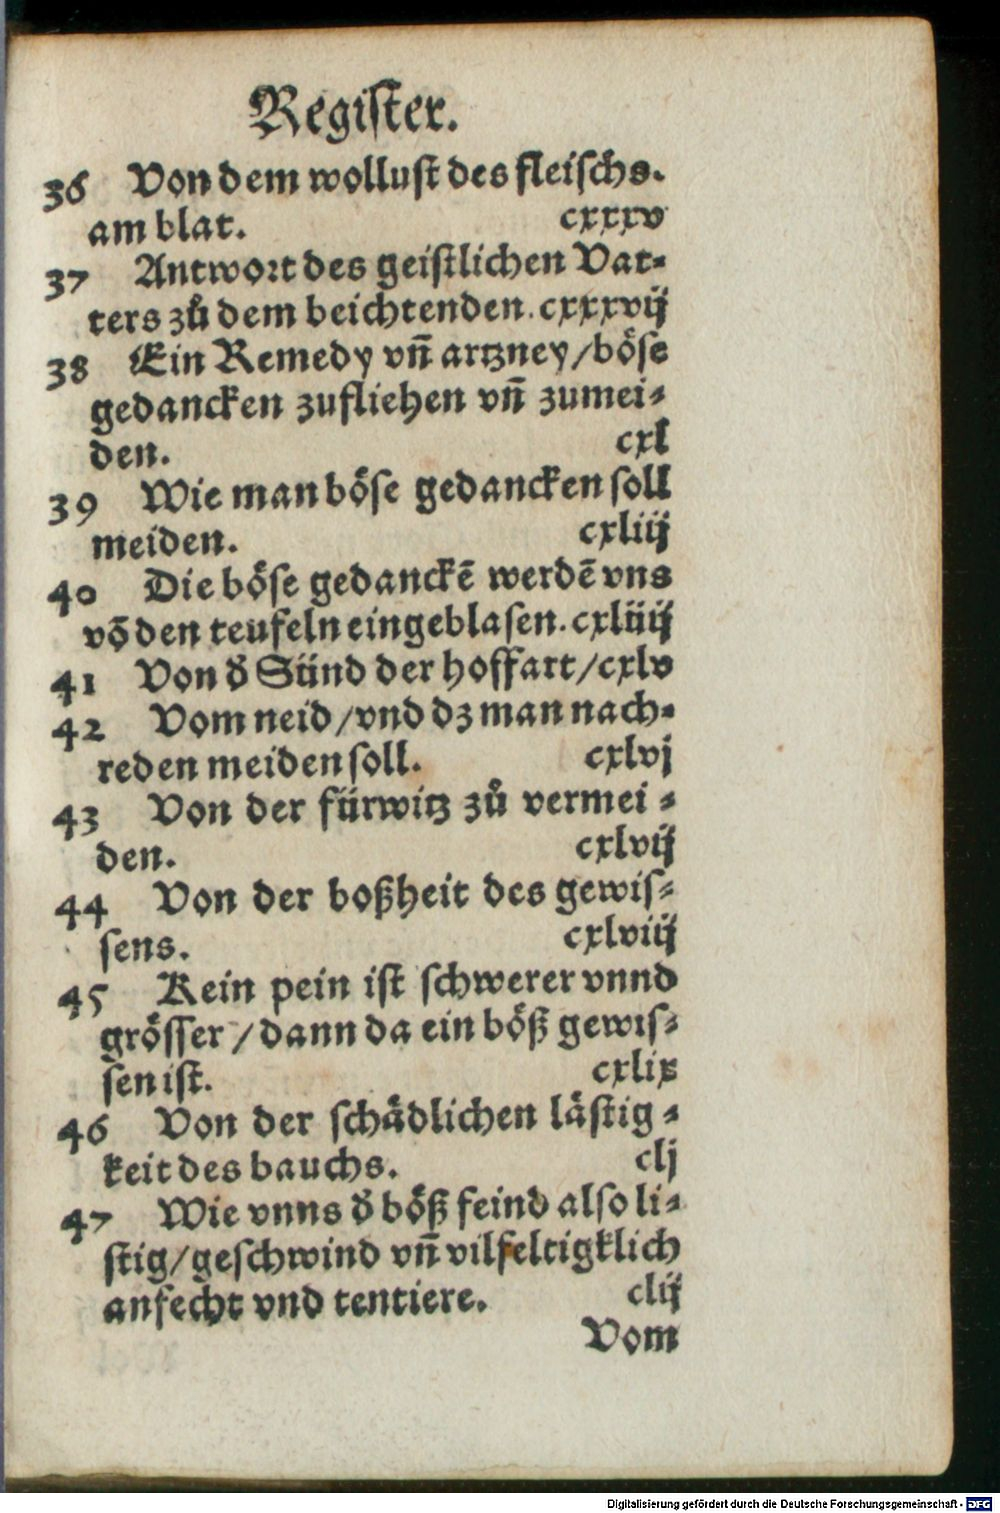 Register.
36 Von dem wollust des fleischs.
am blat. cxxxv
37 Antwort des geistlichen Vat-
ters zů dem beichtenden. cxxxvij
38 Ein Remedy vñ artzney/böse
gedancken zufliehen vñ zumei-
den. cxl
39 Wie man böse gedancken soll
meiden. cxliij
40 Die böse gedanckē werdē vns
vō den teufeln eingeblasen. cxliiij
41 Von d̕ Sünd der hoffart/cxlv
42 Vom neid/vnd dz man nach-
reden meiden soll. cxlvj
43 Von der fürwitz zů vermei-
den. cxlvij
44 Von der boßheit des gewis-
sens. cxlviij
45 Kein pein ist schwerer vnnd
grösser/dann da ein böß gewis-
sen ist. cxlix
46 Von der schädlichen lästig-
keit des bauchs. clj
47 Wie vnns d̕ böß feind also li-
stig/geschwind vñ vilfeltigklich
anfecht vnd tentiere. clij
Vom
Digitalisierung gefördert durch die Deutsche Forschungsgemeinschaft - DFG